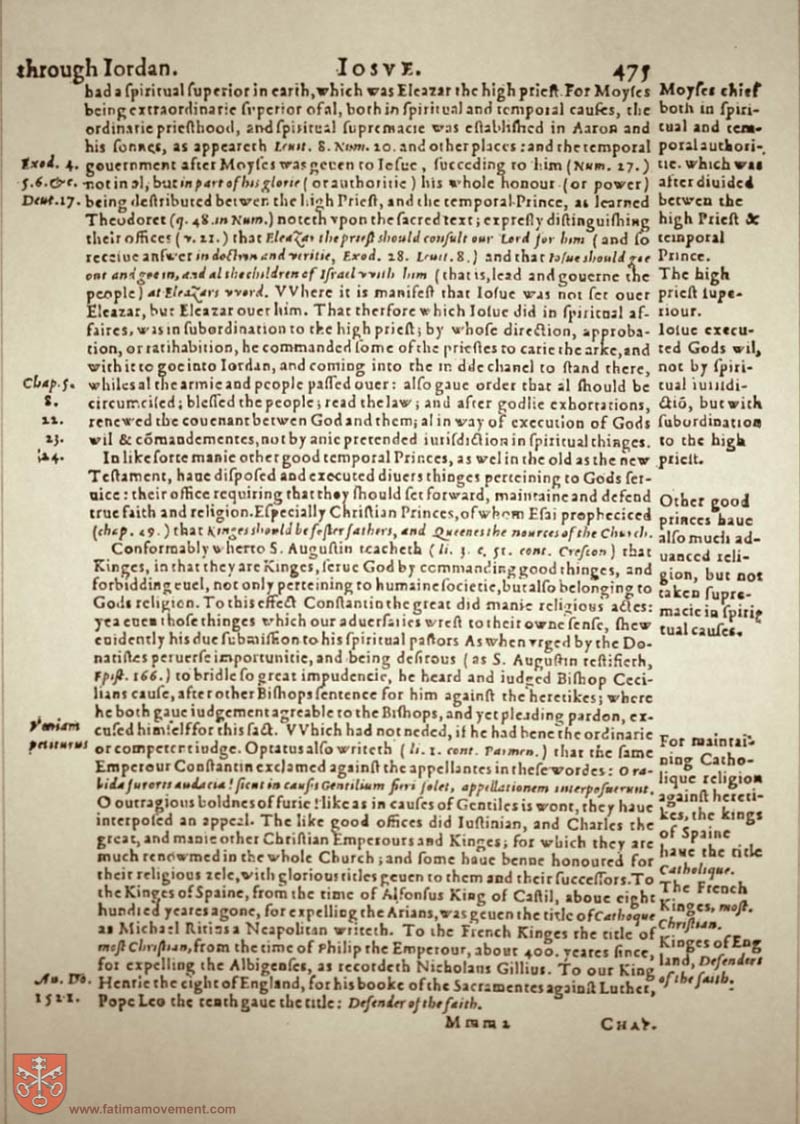 through Iordan.
IOSVE.
475
had a ſpiritual ſuperior in earth, which was Eleazar the high prieſt. For Moyſes
being extraordinarie ſuperior of al, both in ſpiritual and temporal cauſes, the
ordinarie prieſthood, and ſpiritual ſupremacie was eſtabliſhed in Aaron and
his ſonnes, as appeareth Leuit. 8. Num. 20. and other places: and the temporal
gouernment after Moyſes was geuen to Ioſue, ſucceding to him (Num. 27.)
not in al, but in part of his glorie (or authoritie) his whole honour (or power)
being deſtributed betwen the high Prieſt, and the temporal Prince, as learned
Theodoret (q. 48. in Num.) noteth vpon the ſacred text; expreſly diſtinguiſhing
their offices (v. 21.) that Eleazar the prieſt should conſult our Lord for him (and ſo
receiue anſwer in doctrin and veritie, Exod. 28. Leuit. 8.) and that Ioſue should goe
out and goe in, and al the children of Iſrael vvith him (that is, lead and gouerne the
people) at Eleazars vvord. VVhere it is manifeſt that Ioſue was not ſet ouer
Eleazar, but Eleazar ouer him. That therfore which Ioſue did in ſpiritual af-
faires, was in ſubordination to the high prieſt; by whoſe direction, approba-
tion, or ratihabition, he commanded ſome of the prieſtes to carie the arke, and
with it to goe into Iordan, and coming into the midde chanel to ſtand there,
whiles al the armie and people paſſed ouer: alſo gaue order that al ſhould be
circumciſed; bleſſed the people; read the law; and after godlie exhortations,
renewed the couenant betwen God and them; al in way of execution of Gods
wil & cõmandementes, not by anie pretended iuriſdiction in ſpiritual thinges.
In like ſorte manie other good temporal Princes, as wel in the old as the new
Teſtament, haue diſpoſed and executed diuers thinges perteining to Gods ſer-
uice: their office requiring that they ſhould ſet forward, maintaine and defend
true faith and religion. Eſpecially Chriſtian Princes, of whom Eſai propheciced
(chap. 49.) that Kinges should be foſter fathers, and Queenes the nources of the Church.
Conformably wherto S. Auguſtin teacheth (li. 3. c. 51. cont. Creſcon) that
Kinges, in that they are Kinges, ſerue God by commanding good thinges, and
forbidding euel, not only perteining to humaine ſocietie, but alſo belonging to
Gods religion. To this effect Conſtantin the great did manie religious actes:
yea euen thoſe thinges which our aduerſaries wreſt to their owne ſenſe, ſhew
euidently his due ſubmiſſion to his ſpiritual paſtors As when vrged by the Do-
natiſtes peruerſe importunitie, and being deſirous (as S. Auguſtin teſtifieth,
Epiſt. 166.) to bridle ſo great impudencie, he heard and iudged Biſhop Ceci-
lians cauſe, after other Biſhops ſentence for him againſt the heretikes; where
he both gaue iudgement agreable to the Biſhops, and yet pleading pardon, ex-
cuſed himſelf for this fact. VVhich had not neded, if he had bene the ordinarie
or competent iudge. Optatus alſo writeth (li. 1. cont. Parmen.) that the ſame
Emperour Conſtantin exclamed againſt the appellantes in theſe wordes: O ra-
bida furoris audacia! ſicut in cauſis Gentilium fieri ſolet, appellationem interpoſuerunt.
O outragious boldnes of furie! like as in cauſes of Gentiles is wont, they haue
interpoſed an appeal. The like good offices did Iuſtinian, and Charles the
great, and manie other Chriſtian Emperours and Kinges; for which they are
much renowmed in the whole Church; and ſome haue benne honoured for
their religious zele, with glorious titles geuen to them and their ſucceſſors. To
the Kinges of Spaine, from the time of Alfonſus King of Caſtil, aboue eight
hundred yeares agone, for expelling the Arians, was geuen the title of Catholique
as Michael Ritius a Neapolitan writeth. To the French Kinges the title of
moſt Chriſtian, from the time of Philip the Emperour, about 400. yeares ſince,
for expelling the Albigenſes, as recordeth Nicholaus Gillius. To our King
Henrie the eight of England, for his booke of the Sacramentes againſt Luther,
Pope Leo the tenth gaue the title: Defender of the faith.
Mmm 2
CHAP.
Exod. 4.
5. 6. &c.
Deut. 17.
Chap. 5.
8.
22.
23.
24.
Veniam
petiturus
An. Do.
1521.
Moyſes chief
both in ſpiri-
tual and tem-
poral authori-
tie. which was
after diuided
betwen the
high Prieſt &
temporal
Prince.
The high
prieſt ſupe-
riour.
Ioſue execu-
ted Gods wil,
not by ſpiri-
tual iuriſdi-
ctiõ, but with
ſubordination
to the high
prieſt.
Other good
princes haue
alſo much ad-
uanced reli-
gion, but not
taken ſupre-
macie in ſpiri-
tual cauſes.
For maintai-
ning Catho-
lique religion
againſt hereti-
kes, the kings
of Spaine
haue the title
Catholique.
The French
Kinges, moſt
Chriſtian.
Kinges of Eng
land, Defenders
of the faith.
www.fatimamovement.com